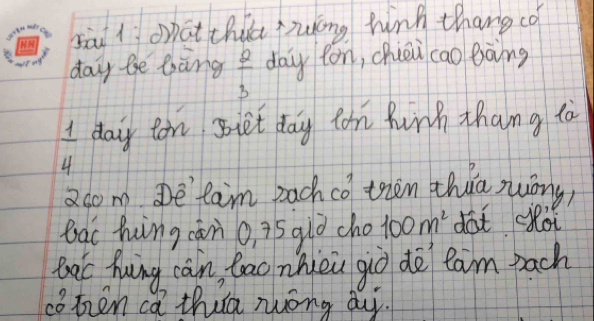 Bài 1: Một thửa ruộng hình thang có
đáy bé bằng 2/3 đáy lớn, chiều cao bằng
1/4 đáy lớn. Biết đáy lớn hình thang là
200 m. Để làm sạch cỏ trên thửa ruộng,
bác hùng cần 0,75 giờ cho 100 m² đất. Hỏi
bác hùng cần bao nhiêu giờ để làm sạch
cỏ trên cả thửa ruộng ấy.